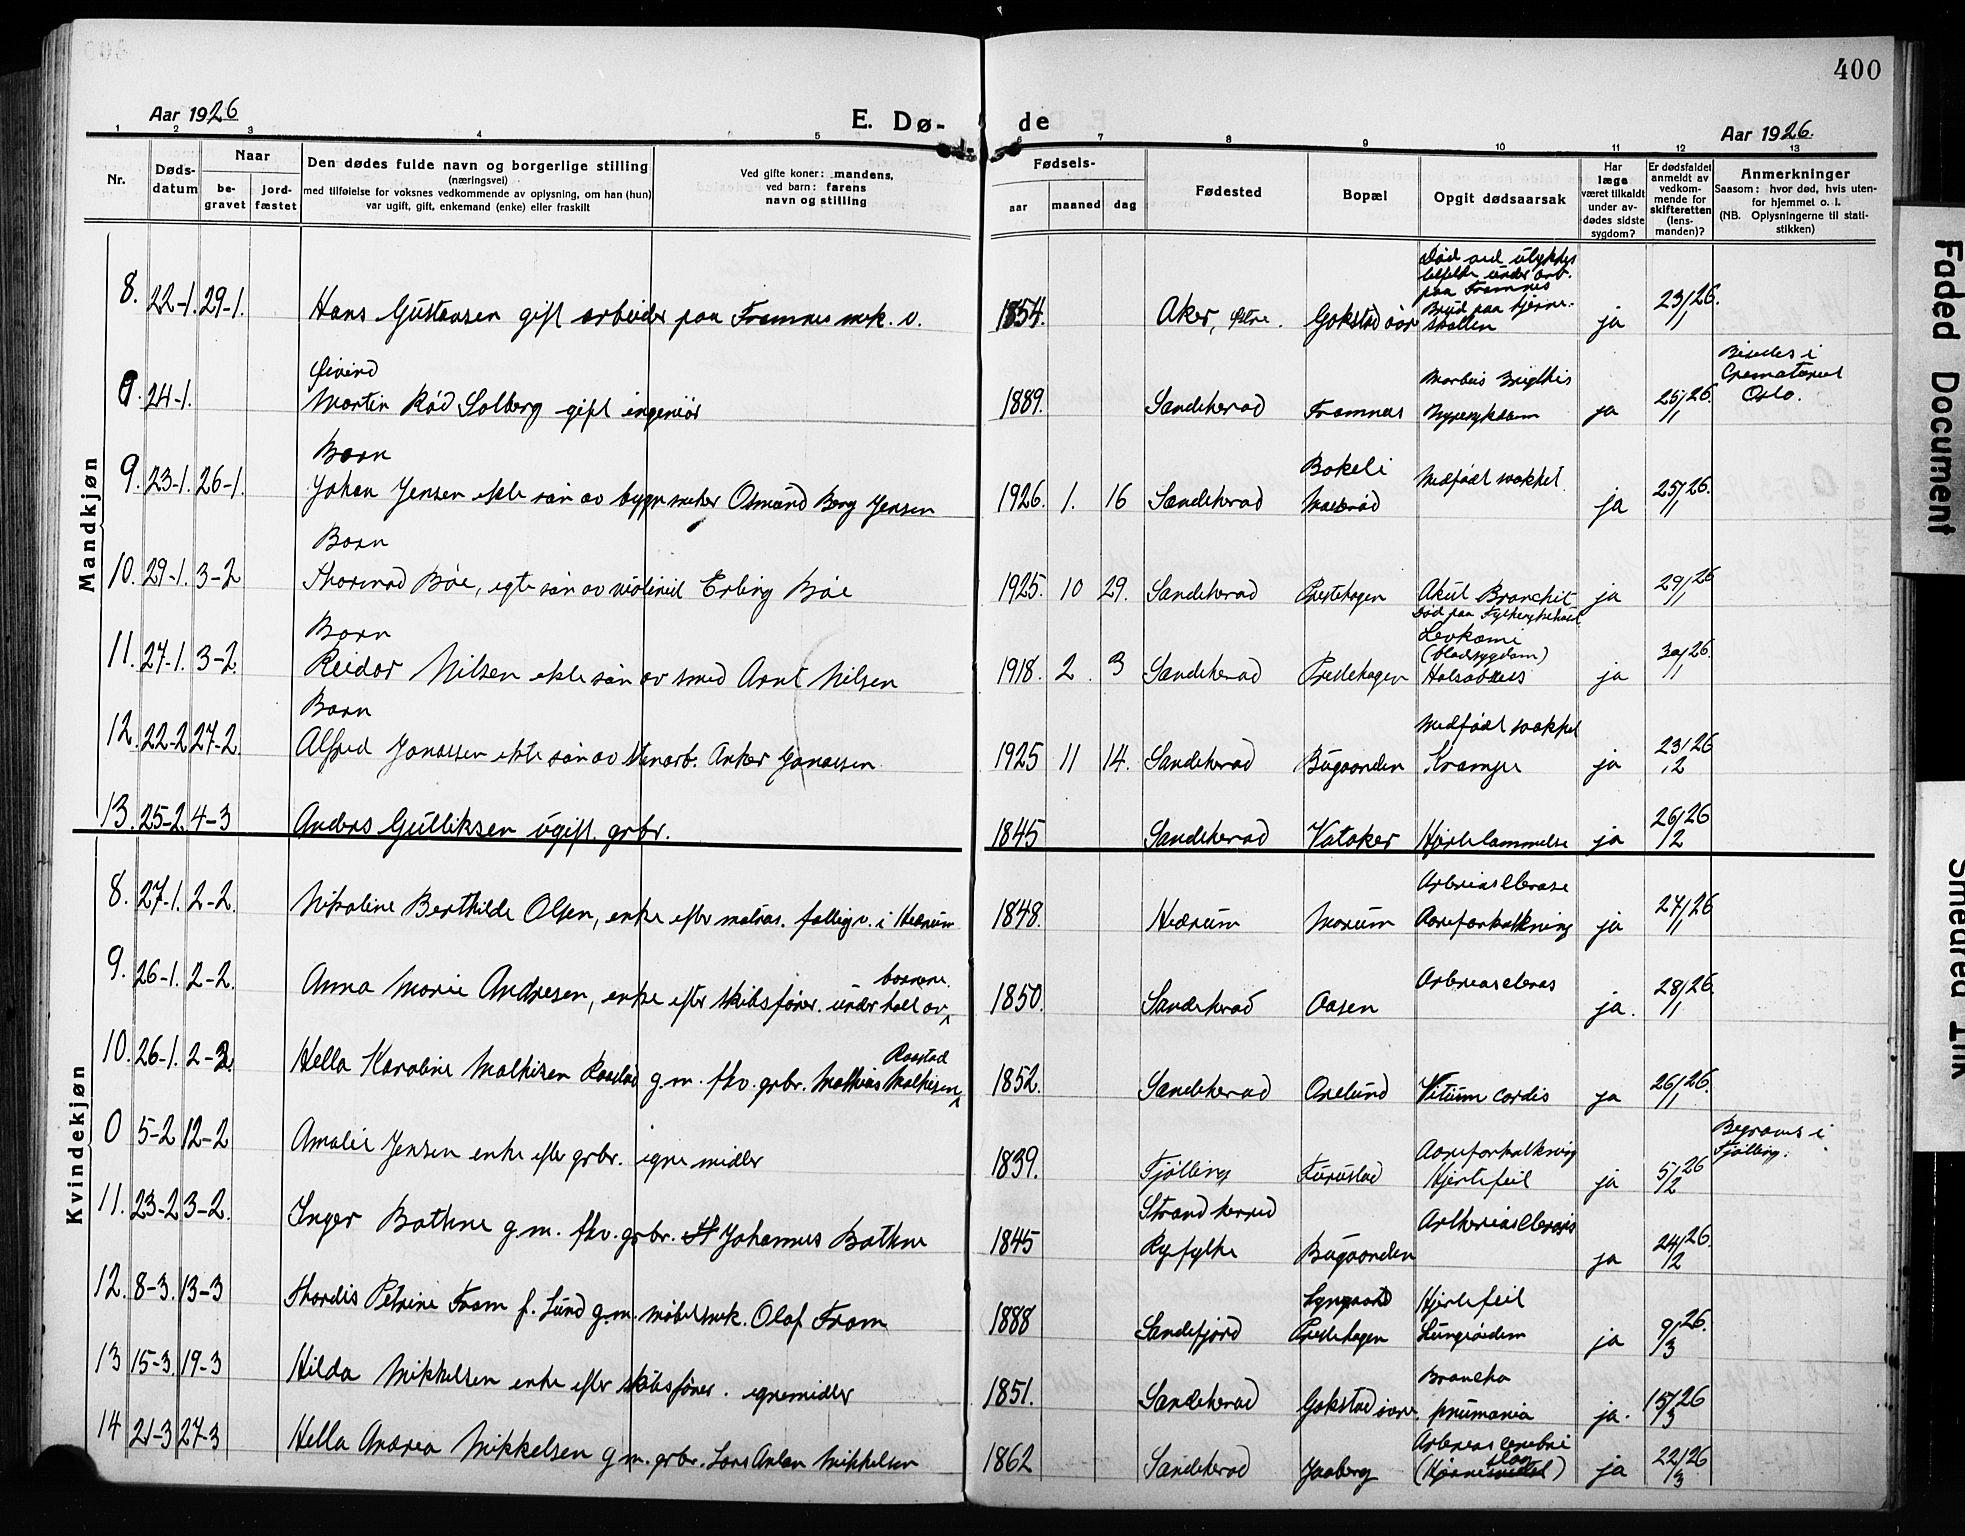 400
Aar 1926
E. Dø- de
Aar 1926.
1 2 3 4 5 6 7 8 9 10 11 12 13
Nr.
Døds-
datum
Naar
be-
gravet
jord-
fæstet
Den dødes fulde navn og borgerlige stilling
(næringsvei)
med tilføielse for voksnes vedkommende av oplysning, om han (hun)
var ugift, gift, enkemand (enke) eller fraskilt
Ved gifte koner: mandens,
ved barn: farens
navn og stilling
Fødsels-
aar maaned dag
Fødested
Bopæl
Opgit dødsaarsak
Har
læge
været tilkaldt
under av-
dødes sidste
sygdom?
Er dødsfaldet
anmeldt av
vedkom-
mende for
skifteretten
(lens-
manden)?
Anmerkninger
Saasom: hvor død, hvis uten-
for hjemmet o. l.
(NB. Oplysningerne til stati-
stikken)
Mandkjøn
Død ved ulykkes
under arb.
paa Framnes
Brud paa hjerne-
skallen
8. 22-1. 29-1. Hans Gustavsen gift arbeider paa Framnes mek. v. 1854. Aker, Østre. Gokstad ja 23/1 26.
Øivind
Morbus Brigthi
Bisættes i
Crematoriet
Oslo.
0. 24-1. Martin Rød Solberg gift ingeniør 1889. Sandeherad Framnes Nyresykdom ja 25/1 26.
Barn
Bokeli
9. 23-1. 26-1. Johan Jensen ekte søn av Osmund Berg Jensen 1926. 1. 16 Sandeherad Medfødt svakhet ja 25/1 26.
Barn
10. 29-1. 3-2 Thormod Bøe, egte søn av Erling Bøe 1925. 10 29. Sandeherad Prestehagen Akut Bronchit ja 29/1 26
Barn
Død paa Fylkessykehuset
Levkæmi
(blodsygdom)
11. 27-1. 3-2. Reidar Nilsen ekte søn av smed Arnt Nilsen 1918. 2. 3 Sandeherad Prestehagen Halsabces ja 30/1 26.
Barn
Medfødt svakhet
12. 22-2 27-2. Alfred Jonassen ekte søn av stenarb. Anker Jonassen 1925 11 14. Sandeherad Bugaarden Krampe ja 23/2 26
13. 25-2. 4-3 Anders Gulliksen ugift grbr. 1845 Sandeherad Vataker Hjertelammelse ja 26/2 26
Kvindekjøn
8. 27-1. 2-2. Nikoline Berthilde Olsen, enke efter matros. fattigv. i Hedrum 1848. Hedrum Morum Aareforkalkning ja 27/1 26
baarne
9. 26-1. 2-2. Anna Marie Andresen, enke efter skibsfører. underholdt av 1850. Sandeherad Aasen ja. 28/1 26.
Raastad
10. 26-1. 2-2 Hella Karoline Mathisen Raastad g.m. fhv. grbr. Mathias Mathisen 1852. Sandeherad Oxelund Vitium cordis ja 26/1 26.
Aareforkalkning
Begraves i
Fjølling.
0 5-2 12-2 Amalie Jensen enke efter grbr. egne midler 1839. Fjølling Furustad Hjertefeil ja 5/2 26
Strand herred
11. 23-2 3-2. Inger Bothne g.m. fhv. grbr. Johannes Bothne 1845 Ryfylke Bugaarden ja 24/2 26.
Lyngaard Hjertefeil
12. 8-3. 13-3 Thordis Petrine Fram f. Lund g.m. møbelsnek. Olaf Fram 1888 Sandefjord Prestehagen Lungeødem ja 9/3 26.
Broncho
13 15-3. 19-3 Hilda Mikkelsen enke efter skibsfører. egne midler 1851. Sandeherad Gokstad pnumonia ja. 15/3 26
14 21-3 27-3 Hella Andrea Mikkelsen g.m. grbr. Lars Anton Mikkelsen 1862 Sandeherad Jaaberg ja 22/3 26
Faded Document
Smeared Ink